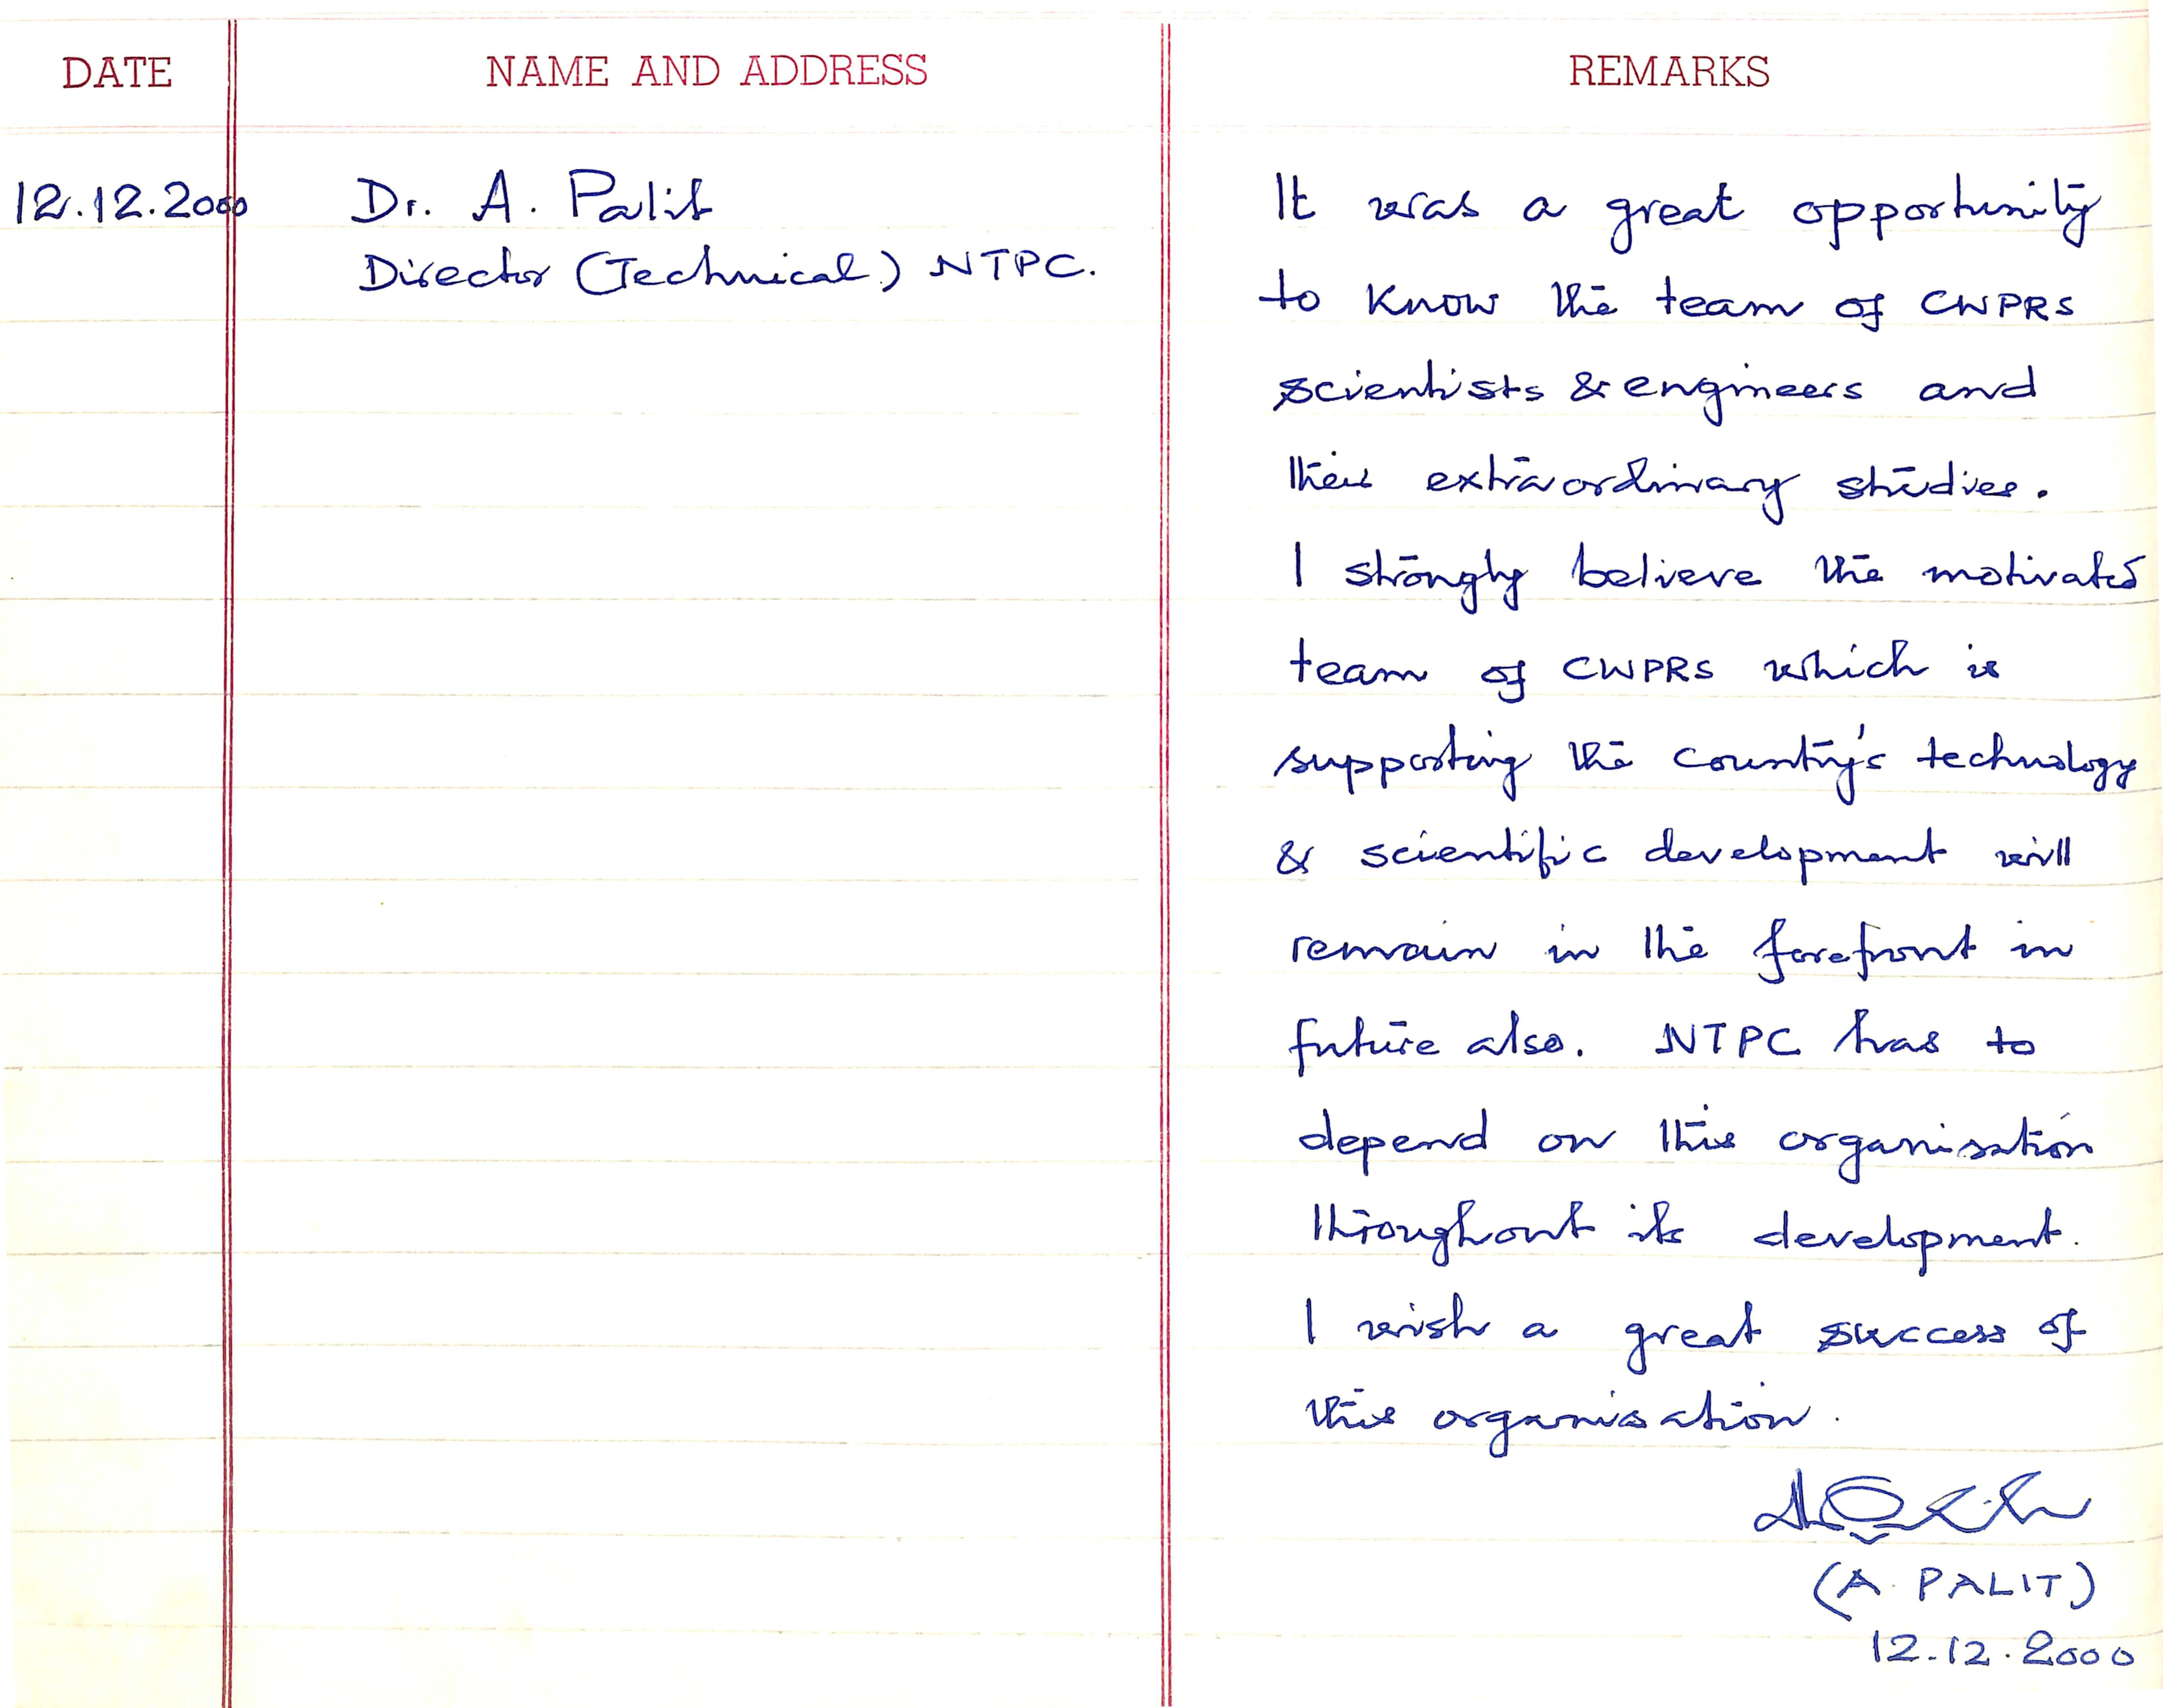 DATE NAME AND ADDRESS REMARKS
12.12.2000
Dr. A. Palit
Director (Technical) NTPC.
It was a great opportunity
to know the team of CWPRS
scientists & engineers and
their extraordinary studies.
I strongly believe the motivated
team of CWPRS which is
supporting the country's technology
& scientific development will
remain in the forefront in
future also. NTPC has to
depend on this organisation
throughout its development.
I wish a great success of
this organisation.
(A. PALIT)
12.12.2000